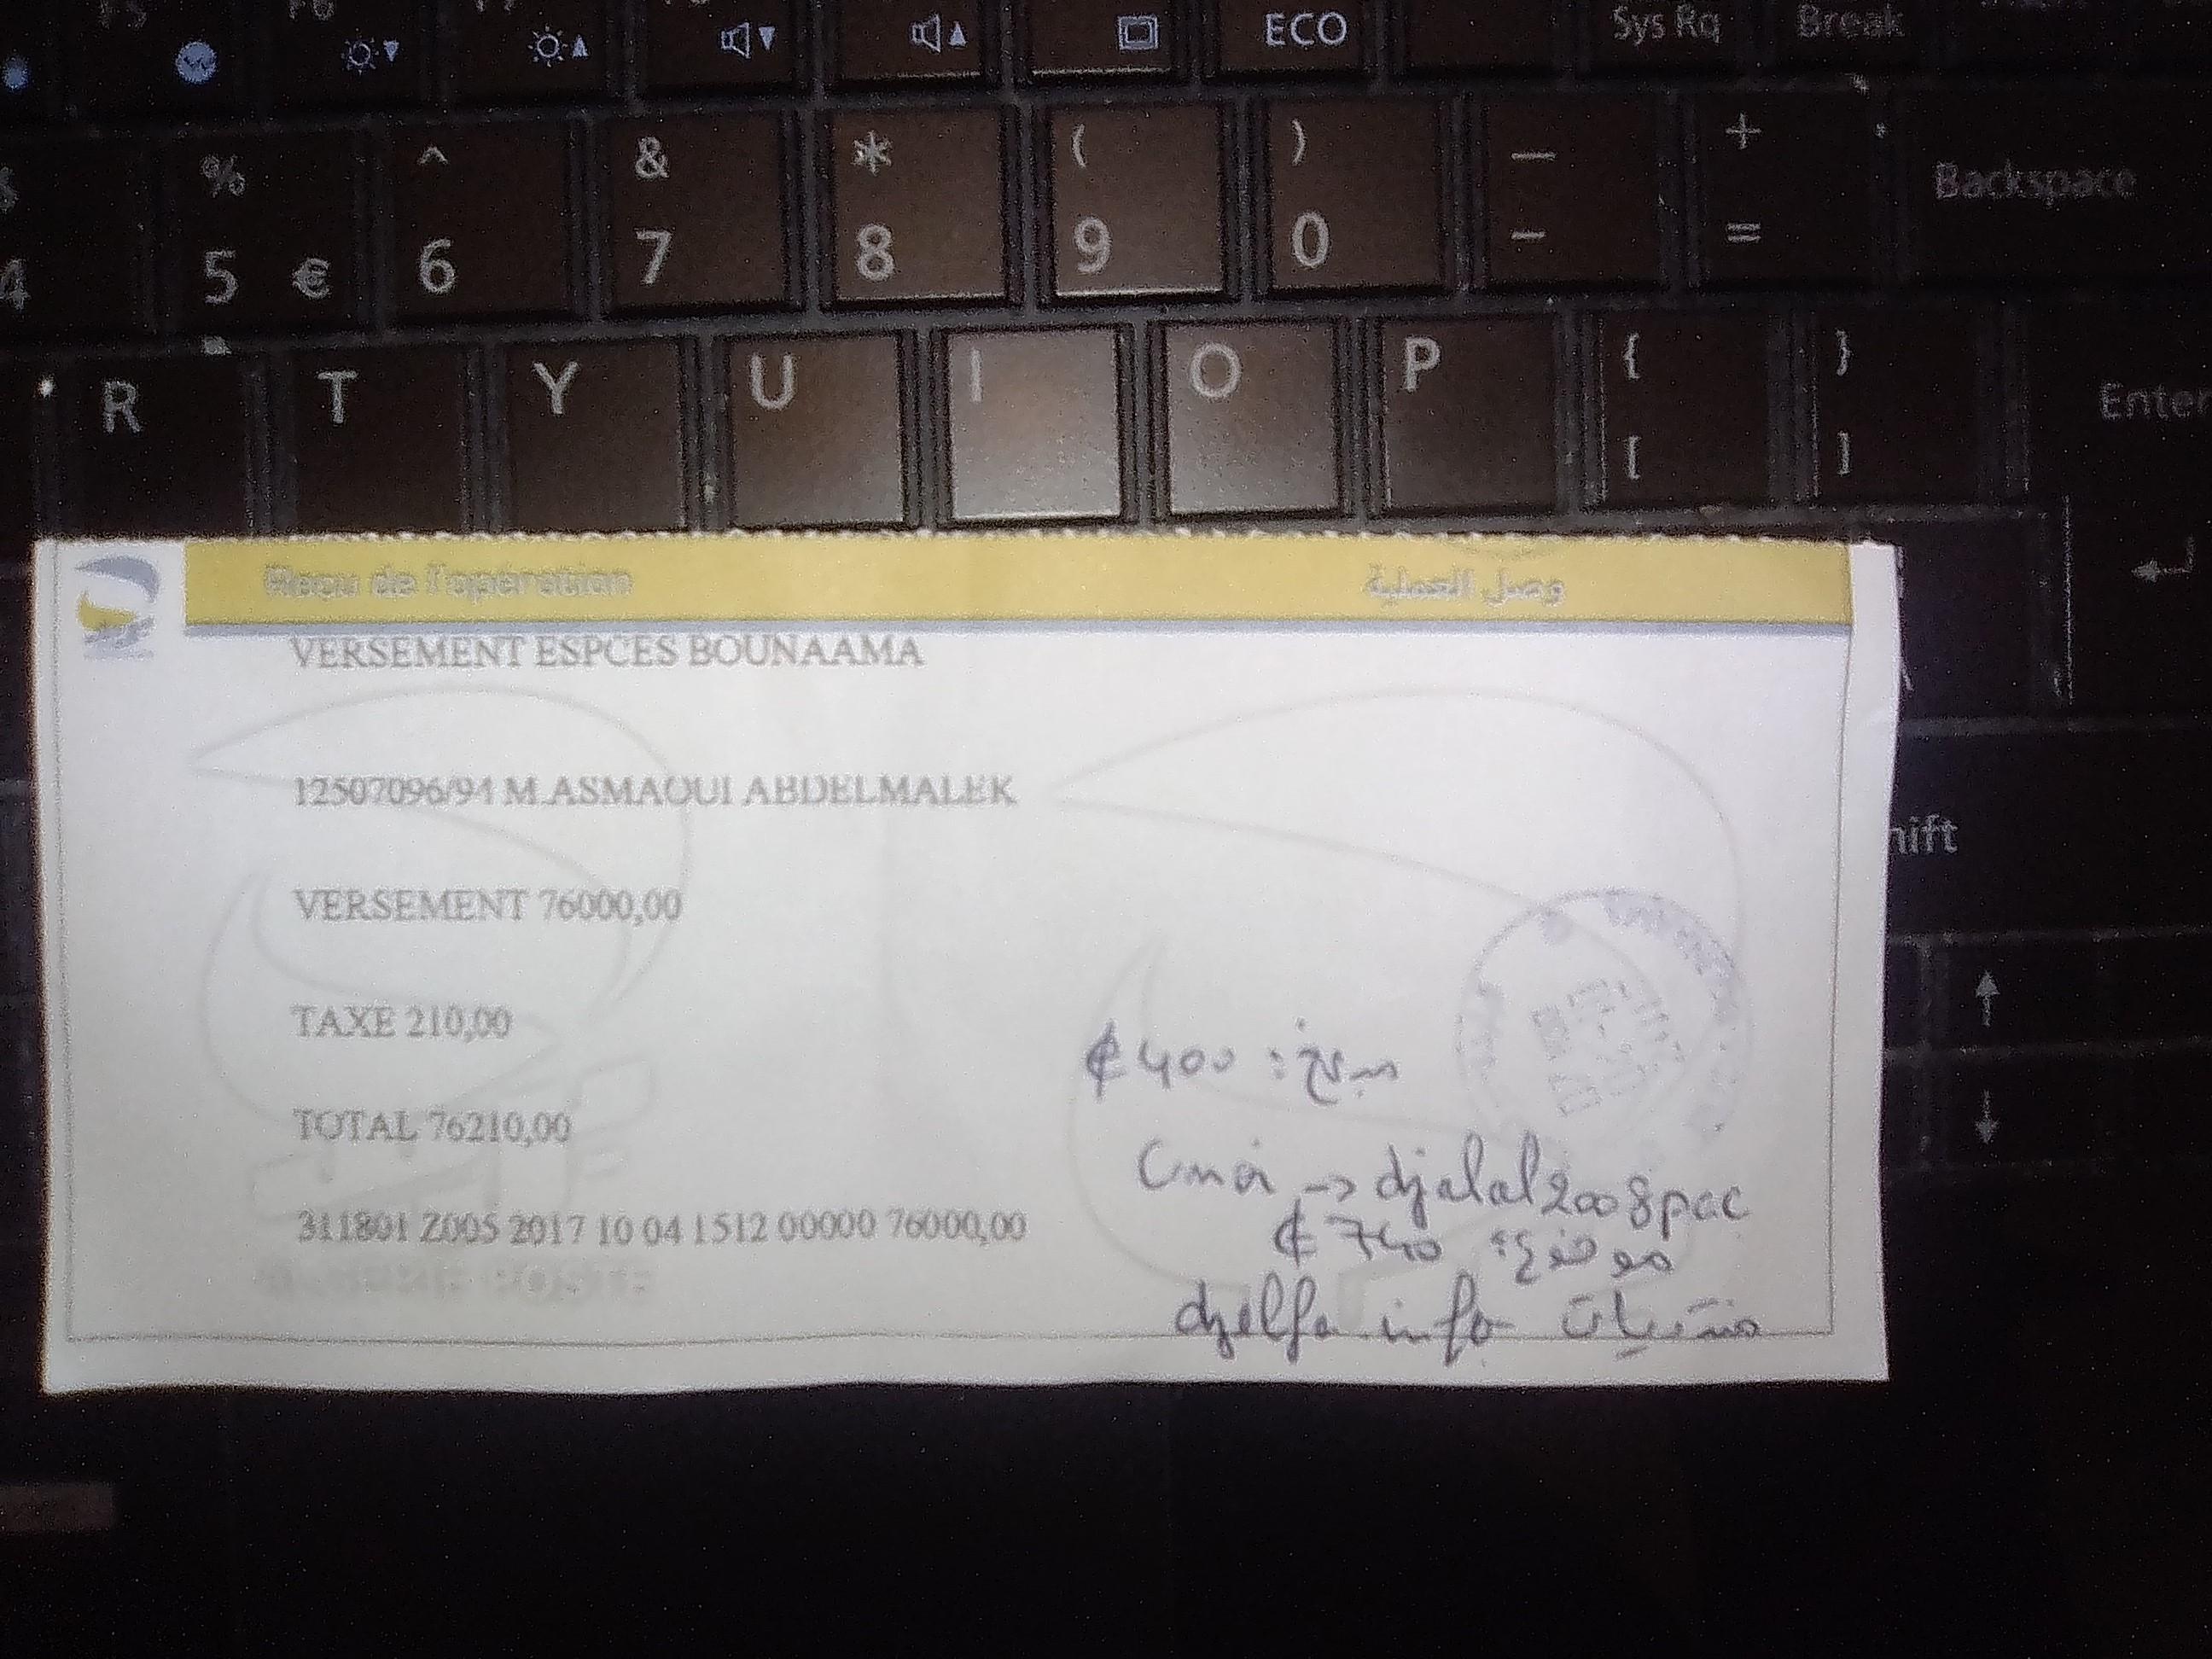 F5 F6
ECO Sys Rq Break
% ^ & * ( ) — +
4 5 € 6 7 8 9 0 - = Backspace
R T Y U I O P { }
[ ] Enter
Reçu de l'opération وصل العملية
VERSEMENT ESPCES BOUNAAMA
12507096/94 M.ASMAOUI ABDELMALEK
hift
VERSEMENT 76000,00
TAXE 210,00
₵ 400 :
TOTAL 76210,00
→ djalal2008pac
311801 Z005 2017 10 04 1512 00000 76000,00
₵ 740 موقع:
djelfa info منتديات